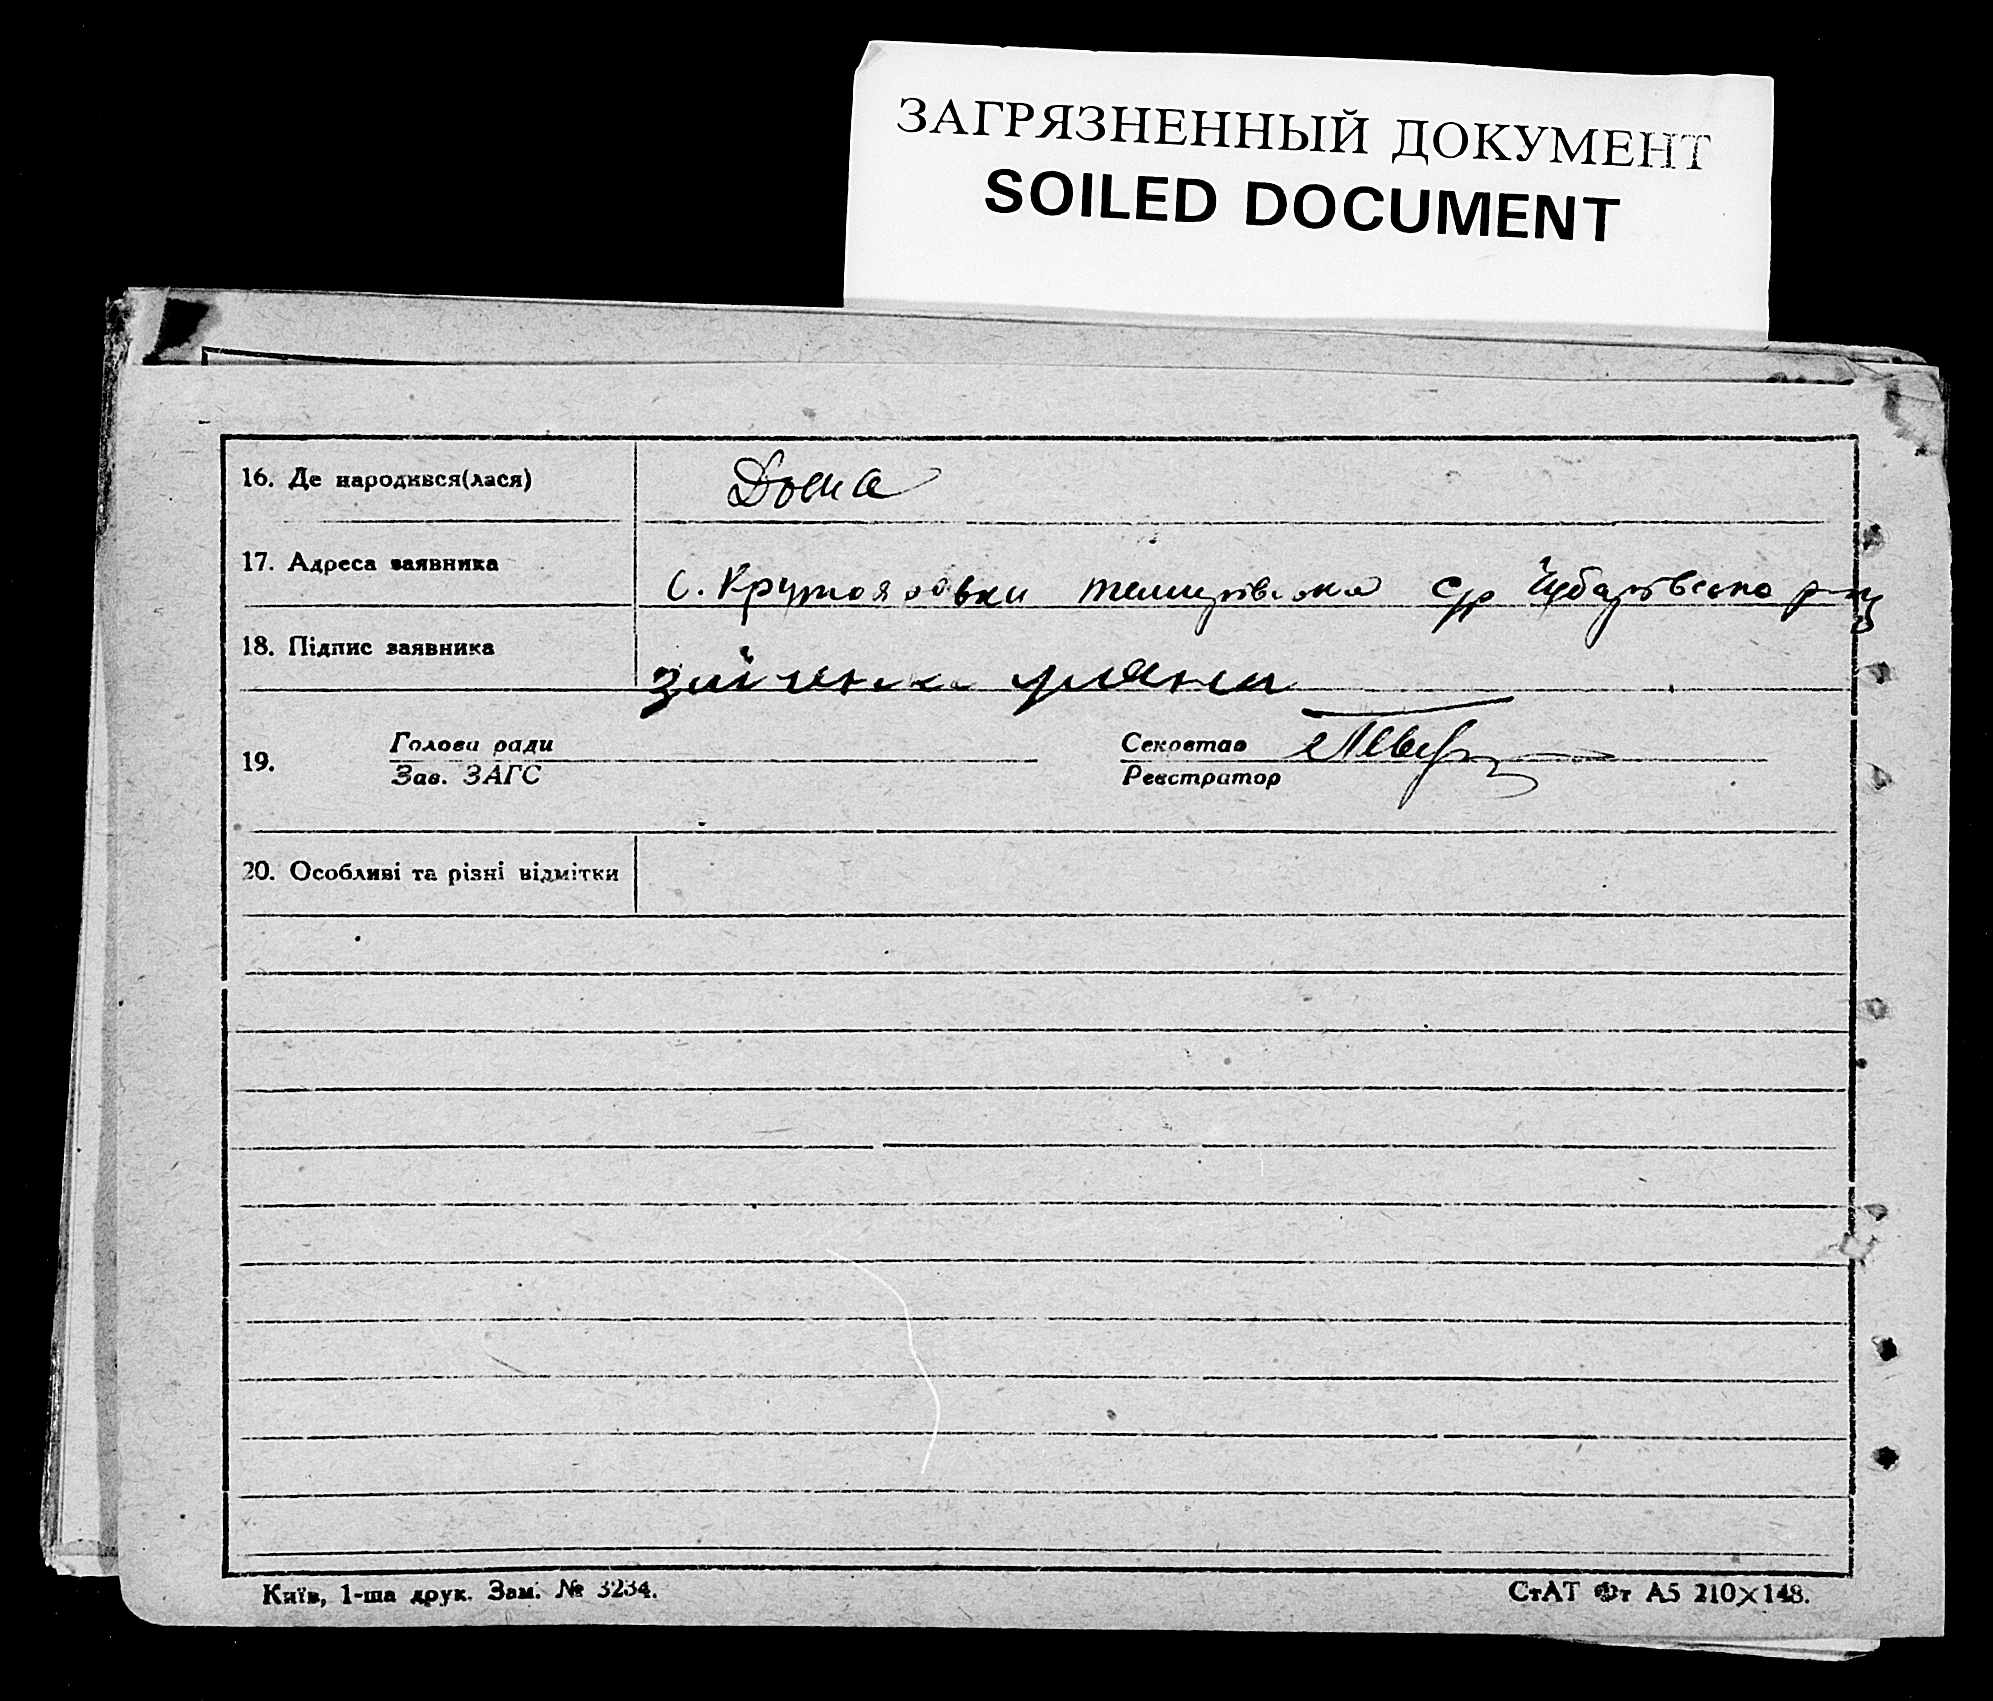 ЗАГРЯЗНЕННЫЙ ДОКУМЕНТ
SOILED DOCUMENT
16. Де народився(лася)
Дома
17. Адреса заявника
с. Крутояровки с/р
18. Підпис заявника
19.
Голова ради
Зав. ЗАГС
Секретар
Реєстратор
20. Особливі та різні відмітки
Київ, 1-ша друк. Зам. № 3234.
СтАТ Фт А5 210×148.